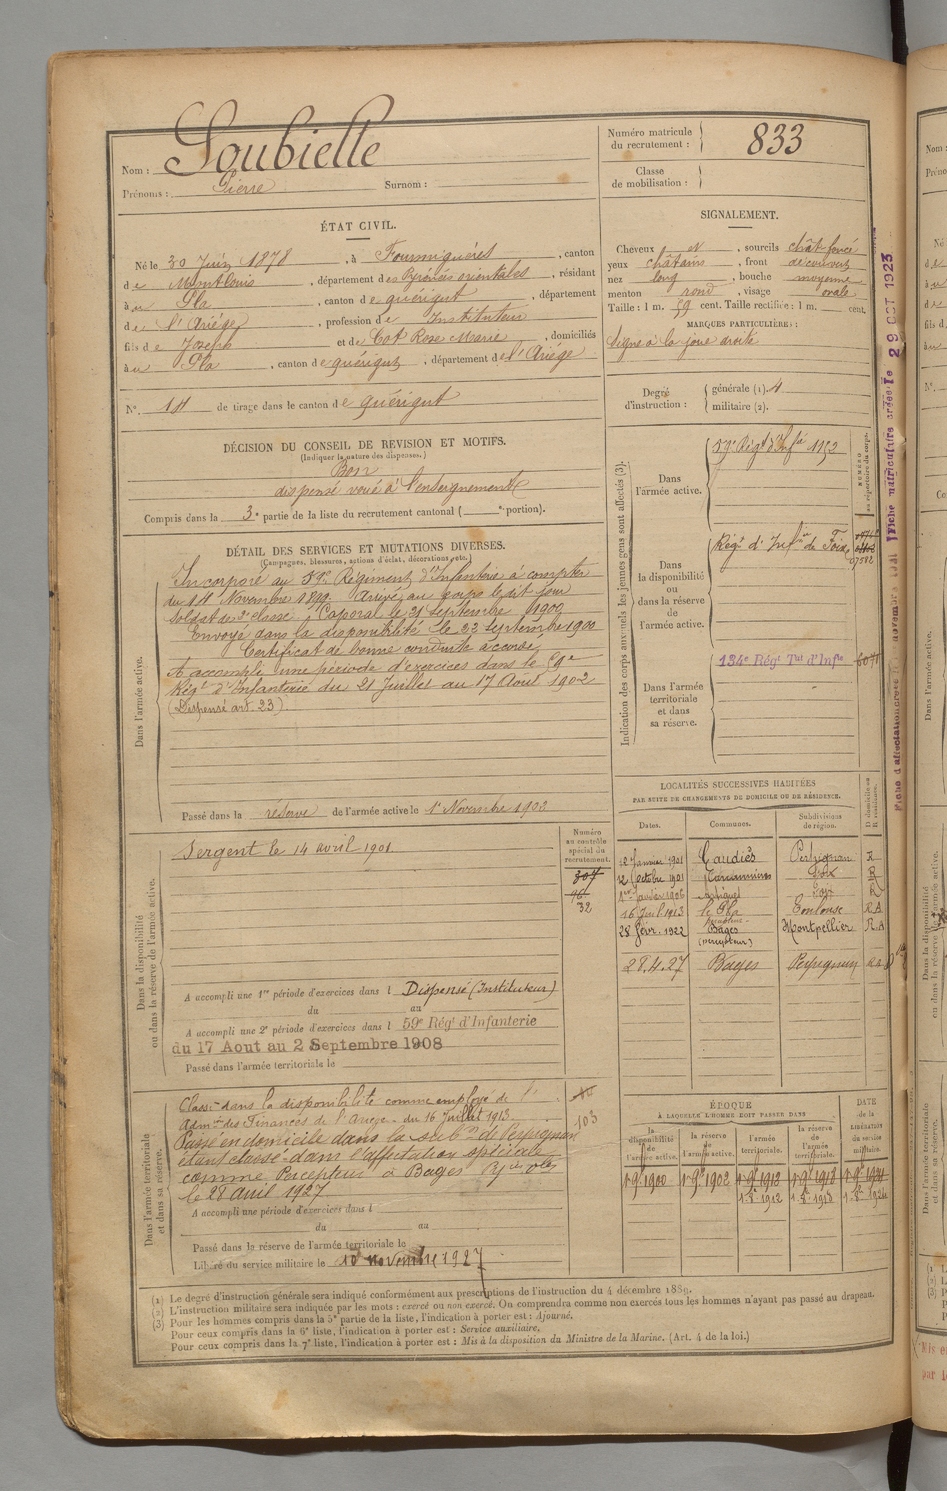 Nom : Soubielle
Prénoms : Pierre Surnom :
Numéro matricule du recrutement : 833
Classe de mobilisation :
ÉTAT CIVIL.
Né le 30 Juin 1878, à Fourmiguères, canton
de Montlouis, département des Pyrénées orientales, résidant
à au Pla, canton de quérigut, département
de l'Ariège, profession de Instituteur
fils de Joseph et de Cot Rose Marie, domiciliés
à au Pla, canton de quérigut, département de l'Ariège
N° 14 de tirage dans le canton de quérigut
SIGNALEMENT.
Cheveux N, sourcils chât foncé
yeux châtains, front découvert
nez long, bouche moyenne
menton rond, visage ovale
Taille : 1 m. 59 cent. Taille rectifiée : 1 m. cent.
MARQUES PARTICULIÈRES :
Signe à la joue droite
Degré d'instruction : générale (1). 4
militaire (2).
DÉCISION DU CONSEIL DE REVISION ET MOTIFS.
(Indiquer la nature des dispenses.)
Bon
dispensé voué à l'enseignement
Compris dans la 3e partie de la liste du recrutement cantonal ( e portion).
DÉTAIL DES SERVICES ET MUTATIONS DIVERSES.
(Campagnes, blessures, actions d'éclat, décorations, etc.)
Dans l'armée active.
Incorporé au 59e Régiment d'Infanterie à compter
du 14 Novembre 1899. Arrivé au corps le dit jour
soldat de 2e classe. Caporal le 21 Septembre 1900
Envoyé dans la disponibilité le 22 Septembre 1900
Certificat de bonne conduite accordé
A accompli une période d'exercices dans le 59e
Régt d'Infanterie du 21 Juillet au 17 Août 1902
(Dispensé art. 23)
Passé dans la réserve de l'armée active le 1er Novembre 1902
Indication des corps auxquels les jeunes gens sont affectés (3).
NUMÉRO au répertoire du corps.
Dans l'armée active.
59e Régt d'Infie 1152
Dans la disponibilité ou dans la réserve de l'armée active.
Régt d'Infie de Foix
07582
Dans l'armée territoriale et dans sa réserve.
134e Régt Tal d'Infie
Fiche matriculaire créée le 29 OCT 1923
LOCALITÉS SUCCESSIVES HABITÉES
PAR SUITE DE CHANGEMENTS DE DOMICILE OU DE RÉSIDENCE.
Dates. Communes. Subdivisions de région. D domicile ou R résidence.
2 Janvier 1901 Caudiès Perpignan R
12 Octobre 1901 Foix R
1er Janvier 1906 Foix R
16 Juil 1913 le Pla Toulouse R.A
percepteur
28 févr. 1922 Bages Montpellier R.A
(percepteur)
28.4.27 Bages Perpignan
Dans la disponibilité ou dans la réserve de l'armée active.
Numéro au contrôle spécial du recrutement.
Sergent le 14 avril 1901.
307
96
32
A accompli une 1re période d'exercices dans l Dispensé (Instituteur)
du au
A accompli une 2e période d'exercices dans l 59e Régt d'Infanterie
du 17 Aout au 2 Septembre 1908
Passé dans l'armée territoriale le
Dans l'armée territoriale et dans sa réserve.
Classé dans la disponibilité comme employé de l'
Admon des Finances de l'Ariège. du 16 Juillet 1913
103
Passé en domicile dans la subon de Perpignan
étant classé dans l'affectation spéciale
comme Percepteur à Bages
le 28 avril 1927
A accompli une période d'exercices dans l
du au
Passé dans la réserve de l'armée territoriale le
Libéré du service militaire le 10 novembre 1927
ÉPOQUE
À LAQUELLE L'HOMME DOIT PASSER DANS
la disponibilité de l'armée active. la réserve de l'armée active. l'armée territoriale. la réserve de l'armée territoriale.
DATE de la LIBÉRATION du service militaire.
1er 9bre 1900 1er 9bre 1902 1er 9bre 1912 1er 9bre 1918
(1) Le degré d'instruction générale sera indiqué conformément aux prescriptions de l'instruction du 4 décembre 1889.
(2) L'instruction militaire sera indiquée par les mots : exercé ou non exercé. On comprendra comme non exercés tous les hommes n'ayant pas passé au drapeau.
(3) Pour les hommes compris dans la 5e partie de la liste, l'indication à porter est : Ajourné.
Pour ceux compris dans la 6e liste, l'indication à porter est : Service auxiliaire.
Pour ceux compris dans la 7e liste, l'indication à porter est : Mis à la disposition du Ministre de la Marine. (Art. 4 de la loi.)